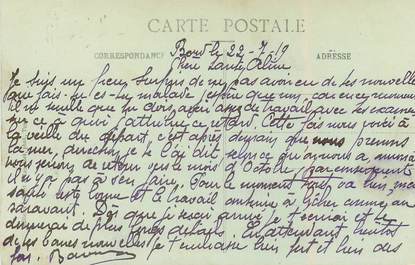 CARTE POSTALE
CORRESPONDANCE
ADRESSE
le 22-7-19
Je suis un peu surpris de ne pas avoir eu de tes nouvelles
que fais-tu es-tu malade j'espère que non, car en ce moment
il me semble que tu dois avoir assez de travail avec les examens
ce à quoi j'attribue ce retard Cette fois nous voici à
la veille du départ, c'est après demain que nous prenons
la mer, direction je te l'ai dit,
nous serons de retour vers le mois d'Octobre,
il n'y a pas à s'en faire. Pour le moment tout va bien, ma
santé est bonne et le travail continue à comme au-
paravant. Dès que je serai arrivé je t'écrirai et te
donnerai de plus longs détails. En attendant bientôt
de tes bonnes nouvelles je t'embrasse bien fort et bien des
fois.